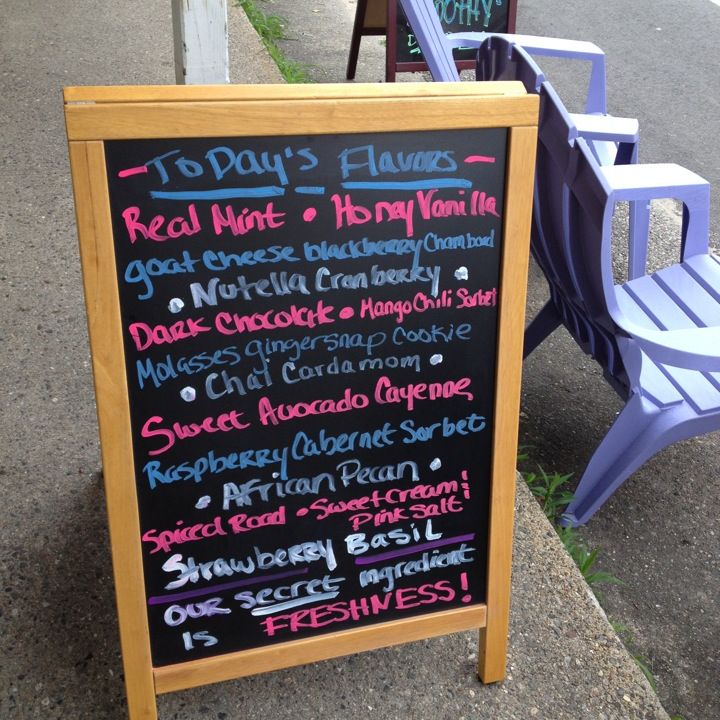 ToDay's Flavors
Real Mint • Honey Vanilla
goat cheese blackberry Chambord
• Nutella Cranberry •
Dark Chocolate • Mango Chili Sorbet
Molasses gingersnap Cookie
• Chai Cardamom •
Sweet Avocado Cayenne
Raspberry Cabernet Sorbet
• African Pecan •
Spiced Road • Sweet Cream &
Pink Salt
Strawberry Basil
our secret ingredient
is FRESHNESS!